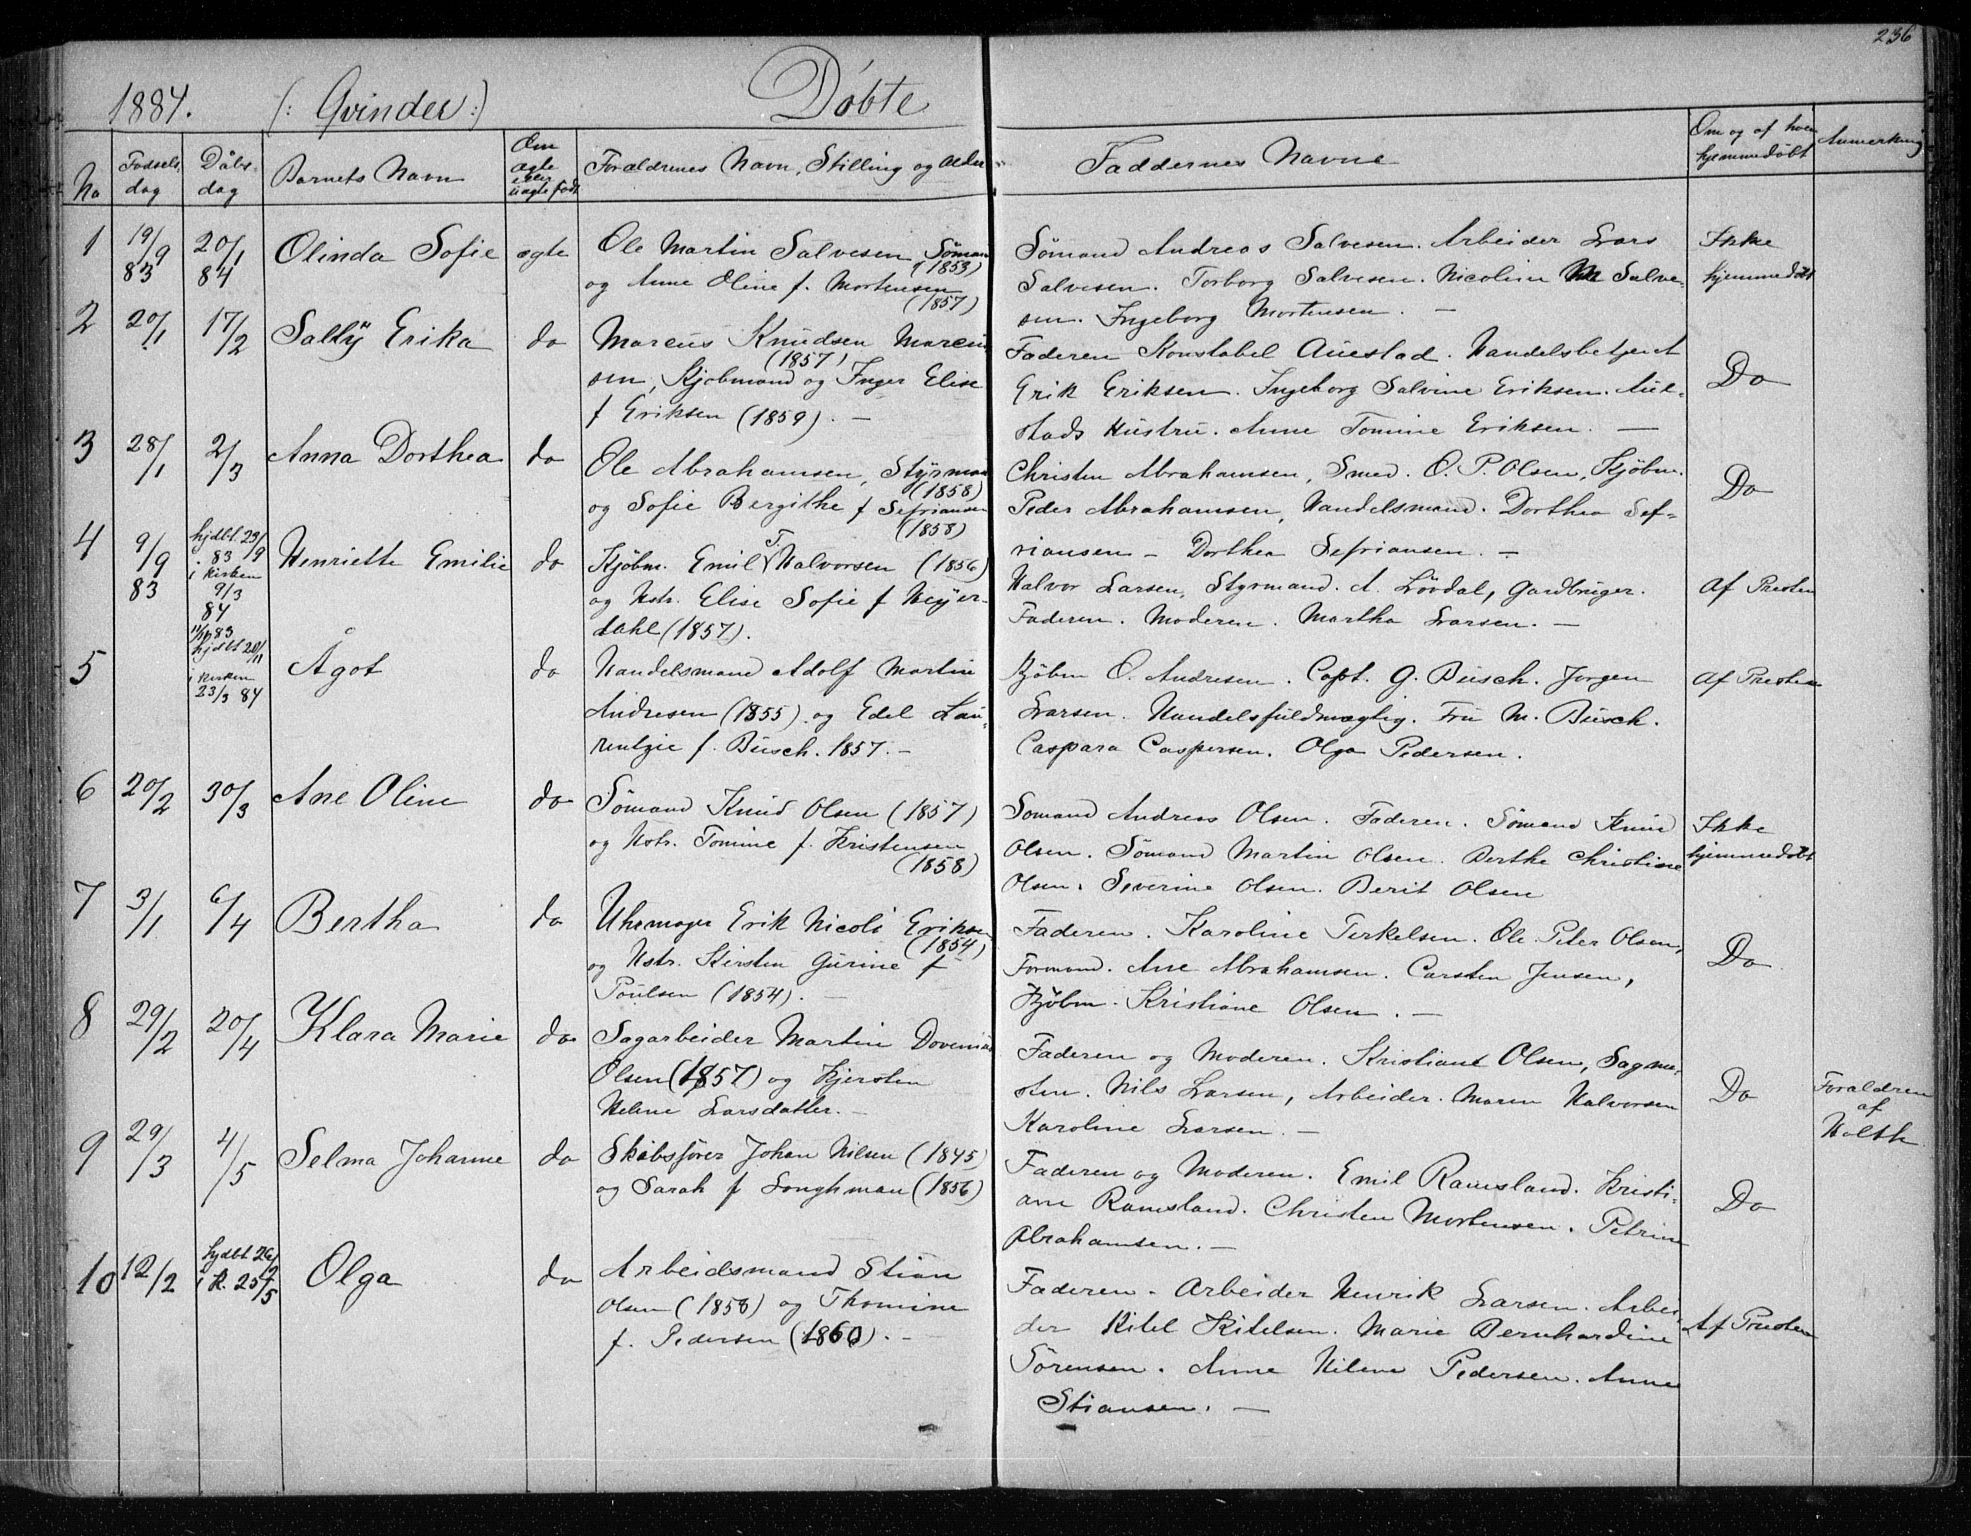 236
1884. (: Qvinder :) Döbte
No
Födsels-dag
Dåbs-dag
Barnets Navn
Om ægte eller uægte född
Forældrenes Navn, Stilling og Alder
Faddernes Navne
Om og af hvem hjemmedöbt
Anmerkning
1 19/9 83 20/1 84 Olinda Sofie ægte
Ole Martin Salvesen Söman (1853)
og Anne Oline f. Mortensen (1857)
Sömand Andreas Salvesen. Arbeider Lars
Salvesen. Torborg Salvesen. Nicoline Salve-
sen. Ingeborg Mortensen. —
Ikke hjemmedöbt
2 20/1 17/2 Sally Erika do
Marcus Knudsen Marcus (1857)
sen, Kjøbmand og Inger Elise
f Eriksen (1859). —
Faderen Konstabel Auestad. Handelsbetjent
Erik Eriksen. Ingeborg Salvine Eriksen. Aue-
stads Hustru. Anne Tomine Eriksen. —
Do
3 28/1 2/3 Anna Dorthea do
Ole Abrahamsen, Styrman (1858)
og Sofie Bergithe f Sefriansen (1858)
Christen Abrahamsen, Smed. O. P. Olsen, Kjøbm.
Peder Abrahamsen, Handelsmand. Dorthea Sef-
riansen — Dorthea Sefriansen. —
Do
4 9/9 83 hjdbt 23/9 83 i Kirken 9/3 84 Henriette Emilie do
Kjøbm. Emil T. Halvorsen (1856)
og Hstr. Elise Sofie f Heyer-
dahl (1857).
Halvor Larsen, Styrmand. A. Lövdal, Gardbruger.
Faderen. Moderen. Martha Larsen. —
Af Presten
5 hjdbt 20/11 83 i Kirken 23/3 84 Ågot do
Handelsmand Adolf Martin
Andresen (1855) og Edel Lau-
rentzie f. Busch. 1857. —
Kjöbm O. Andresen. Capt. G. Busch. Jørgen
Larsen. Handelsfuldmægtig. Fru M. Busch.
Caspara Caspersen. Olga Pedersen.
Af Presten
6 20/2 30/3 Ane Oline do
Sömand Knud Olsen (1857)
og Hstr. Tomine f. Kristensen (1858)
Sömand Andreas Olsen. Faderen. Sömand Knud
Olsen. Sömand Martin Olsen. Berthe Christine
Olsen. Severine Olsen. Berit Olsen
Ikke hjemmedöbt
7 3/1 6/4 Bertha do
Uhrmager Erik Nicolai Eriksen (1854)
og Hstr. Kirsten Gurine f
Poulsen (1854). —
Faderen. Karoline Terkelsen. Ole Peter Olsen,
Formand. Ane Abrahamsen. Carsten Jensen,
Kjöbm. Kristiane Olsen. —
Do
8 29/2 20/4 Klara Marie do
Sagarbeider Martin
Olsen (1857) og Kjersten
Helene Larsdatter. —
Faderen og Moderen. Kristiant Olsen, Sagme-
sten. Nils Larsen, Arbeider. Maren Halvorsen
Karoline Larsen. —
Do
Forældren af Holth
9 29/3 4/5 Selma Johanne do
Skibsförer Johan Nilsen (1845)
og Sarah f Longhman (1856)
Faderen og Moderen. Emil Ramsland. Kristi-
ane Ramsland. Christen Mortensen. Petrine
Abrahamsen. —
Do
10 12/2 hjdbt 26/2 i K. 25/5 Olga do
Arbeidsmand Stian
Olsen (1858) og Thomine
f. Pedersen (1860). —
Faderen. Arbeider Henrik Larsen. Arbei-
der Kitel Kitelsen. Marie Bernhardine
Sörensen. Anne Helene Pedersen. Anne
Stiansen. —
Af Presten